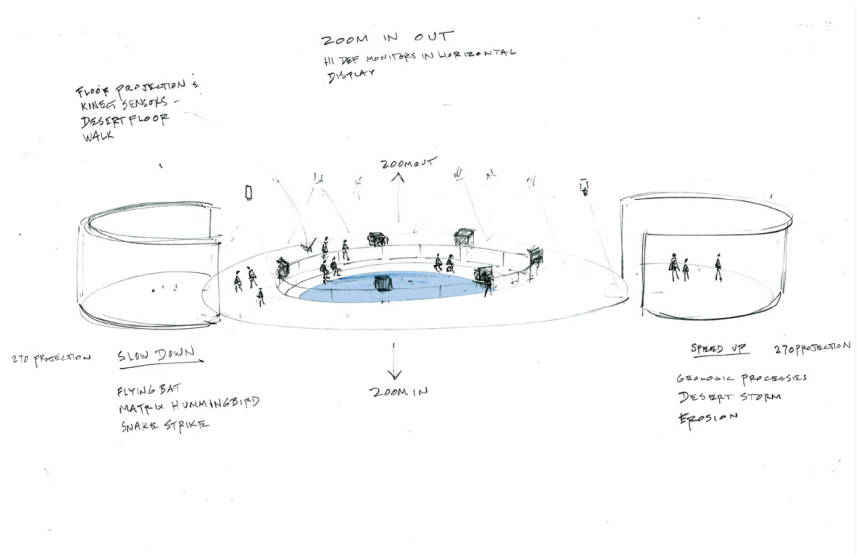 ZOOM IN OUT
HI DEF MONITORS IN HORIZONTAL
DISPLAY
FLOOR PROJECTION &
KINECT SENSORS -
DESERT FLOOR
WALK
ZOOM OUT
270 PROJECTION
SLOW DOWN
FLYING BAT
MATRIX HUMMINGBIRD
SNAKE STRIKE
ZOOM IN
SPEED UP
270 PROJECTION
GEOLOGIC PROCESSIES
DESERT STORM
EROSION